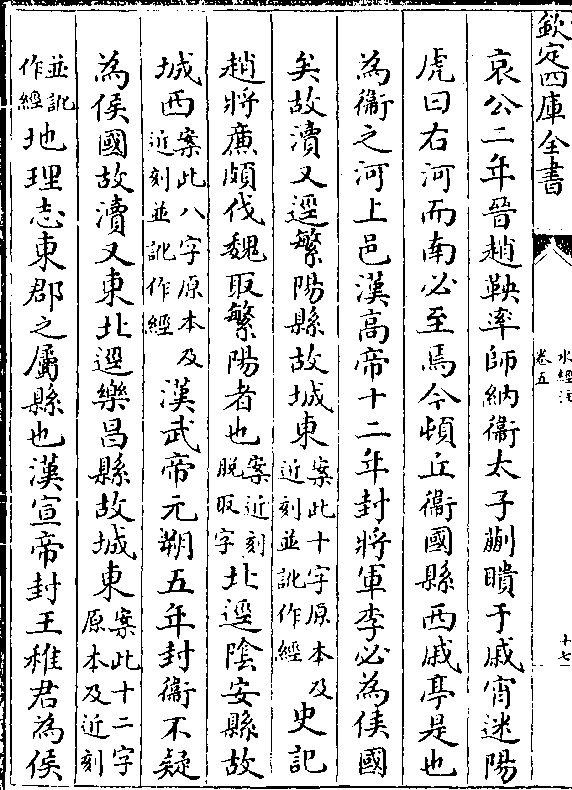 欽定四庫全書
水經注
卷五
十七
哀公二年晉趙鞅率師納衞太子蒯聵于戚宵迷陽
虎曰右河而南必至焉今頓丘衞國縣西戚亭是也
為衞之河上邑漢高帝十二年封將軍李必為侯國
矣故瀆又逕繁陽縣故城東案此十字原本及近刻並訛作經史記
趙將㢘頗伐魏取繁陽者也案近刻脱取字北逕隂安縣故
城西案此八字原本及近刻並訛作經漢武帝元朔五年封衞不疑
為侯國故瀆又東北逕樂昌縣故城東案此十二字原本及近刻
並訛作經地理志東郡之屬縣也漢宣帝封王稚君為侯